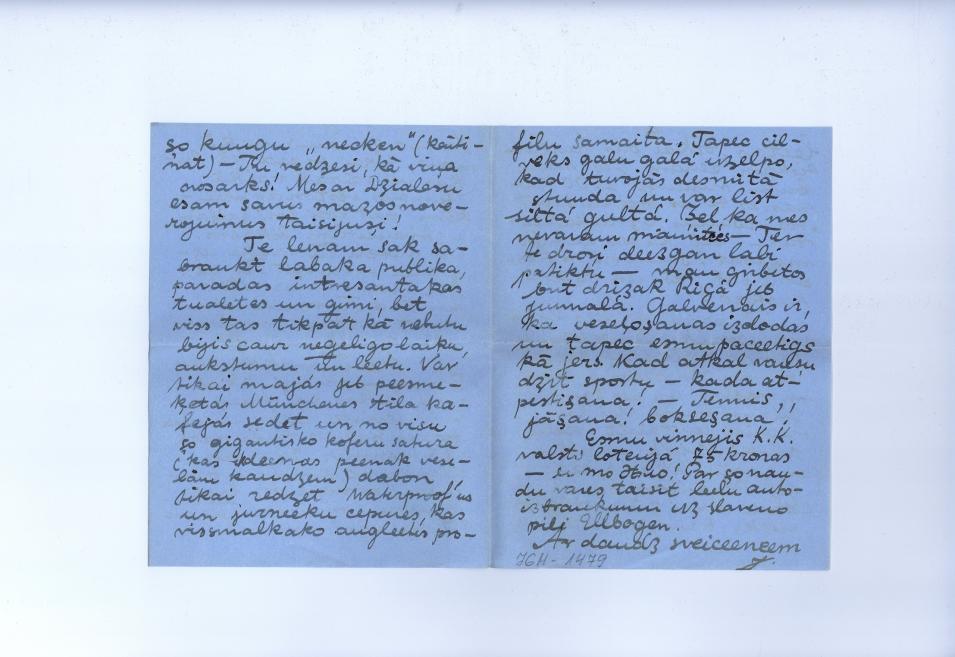 šo kungu „necken" (kaiti-
nat) – Tu redzesi, kā viņa
nosarks! Mes ar Dzialesu
esam savus mazos nove-
rojumus taisijusi!
Te lenam sak sa-
braukt labaka publika,
paradas intresantakas
tualetes un gimi, bet
viss tas tikpat kā nebutu
bijis caur negeligo laiku,
aukstumu un leetu. Var
tikai majās jeb peesme-
ķetás Münchenes stila ka-
fejās sedet un no visu
šo gigantisko koferu satura
(kas ikdeenas peenak vese-
lām kaudzem) dabon
tikai redzet Waterproof'us
un jurneeku cepures, kas
vissmalkako angleetis pro-
filu samaita. Tapec cil-
veks galu galá uzelpo,
kad tuvojás desmitā
stunda un var list
siltá gultá. Žel ka mes
nevaram mainitees – Tev
te droši deezgan labi
patiktu – man gribetos
but drizak Rigá jeb
jurmalā. Galvenais ir,
ka veseļošanas izdodas
un tapec esmu paceetigs
kā jers. Kad atkal varesu
dzit sportu – kada at-
pestišana! – Tennis,
jāšana! boksešana!
Esmu vinnejis K.K.
valsts loterijá 75 kronas
– si mo Huo! Par šo nau-
du vares taisit leelu auto-
izbraukumu uz slaveno
pili Ellbogen.
Ar daudz sveiceeneem
J.
JGM-1479